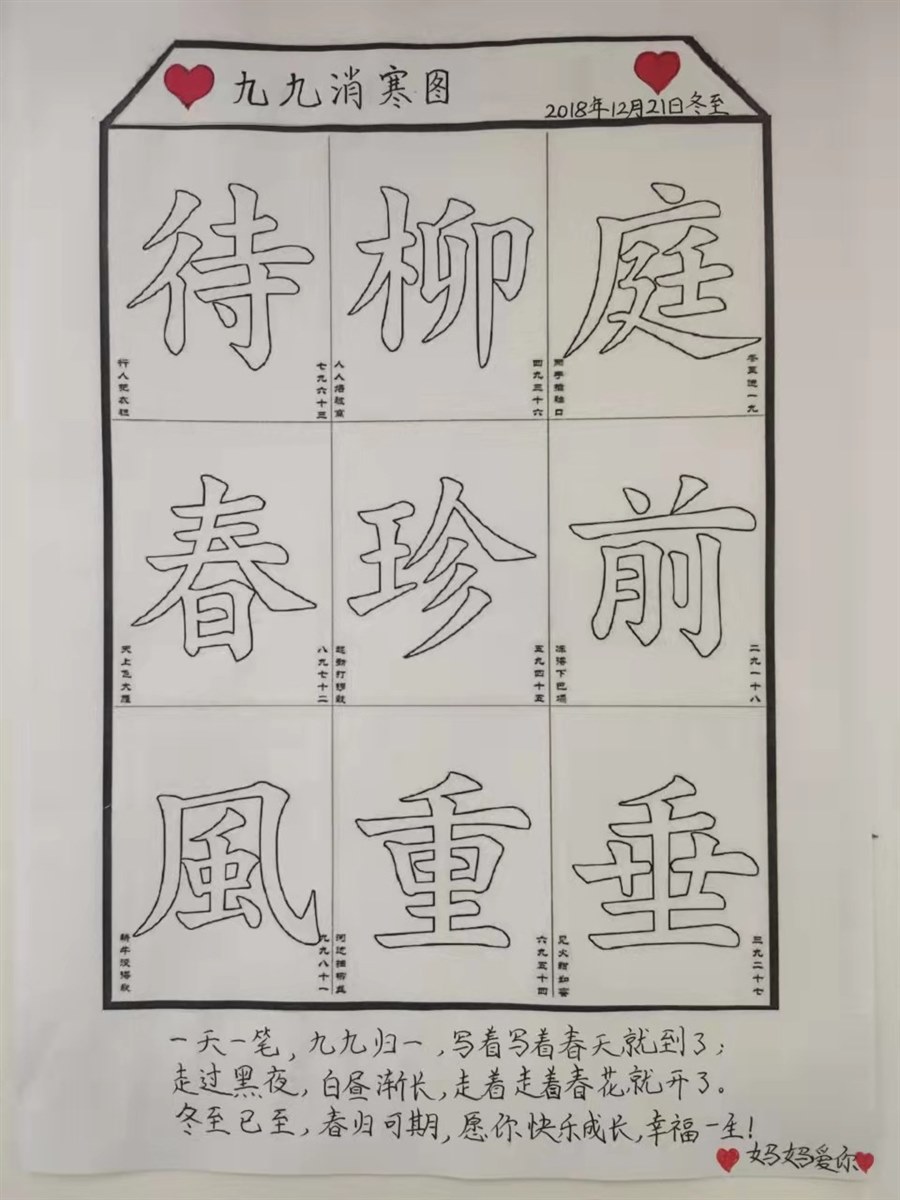 九九消寒图
2018年12月21日冬至
庭
冬至进一九
两手藏袖口
前
二九一十八
下巴塌
垂
三九二十七
见火甜如蜜
柳
四九三十六
人人
珍
五九四十五
重
六九五十四
河边插柳
待
七九六十三
行人把衣袒
春
八九七十二
天上飞大雁
風
九九八十一
耕牛没得歇
一天一笔，九九归一，写着写着春天就到了；
走过黑夜，白昼渐长，走着走着春花就开了。
冬至已至，春归可期，愿你快乐成长，幸福一生！
妈妈爱你